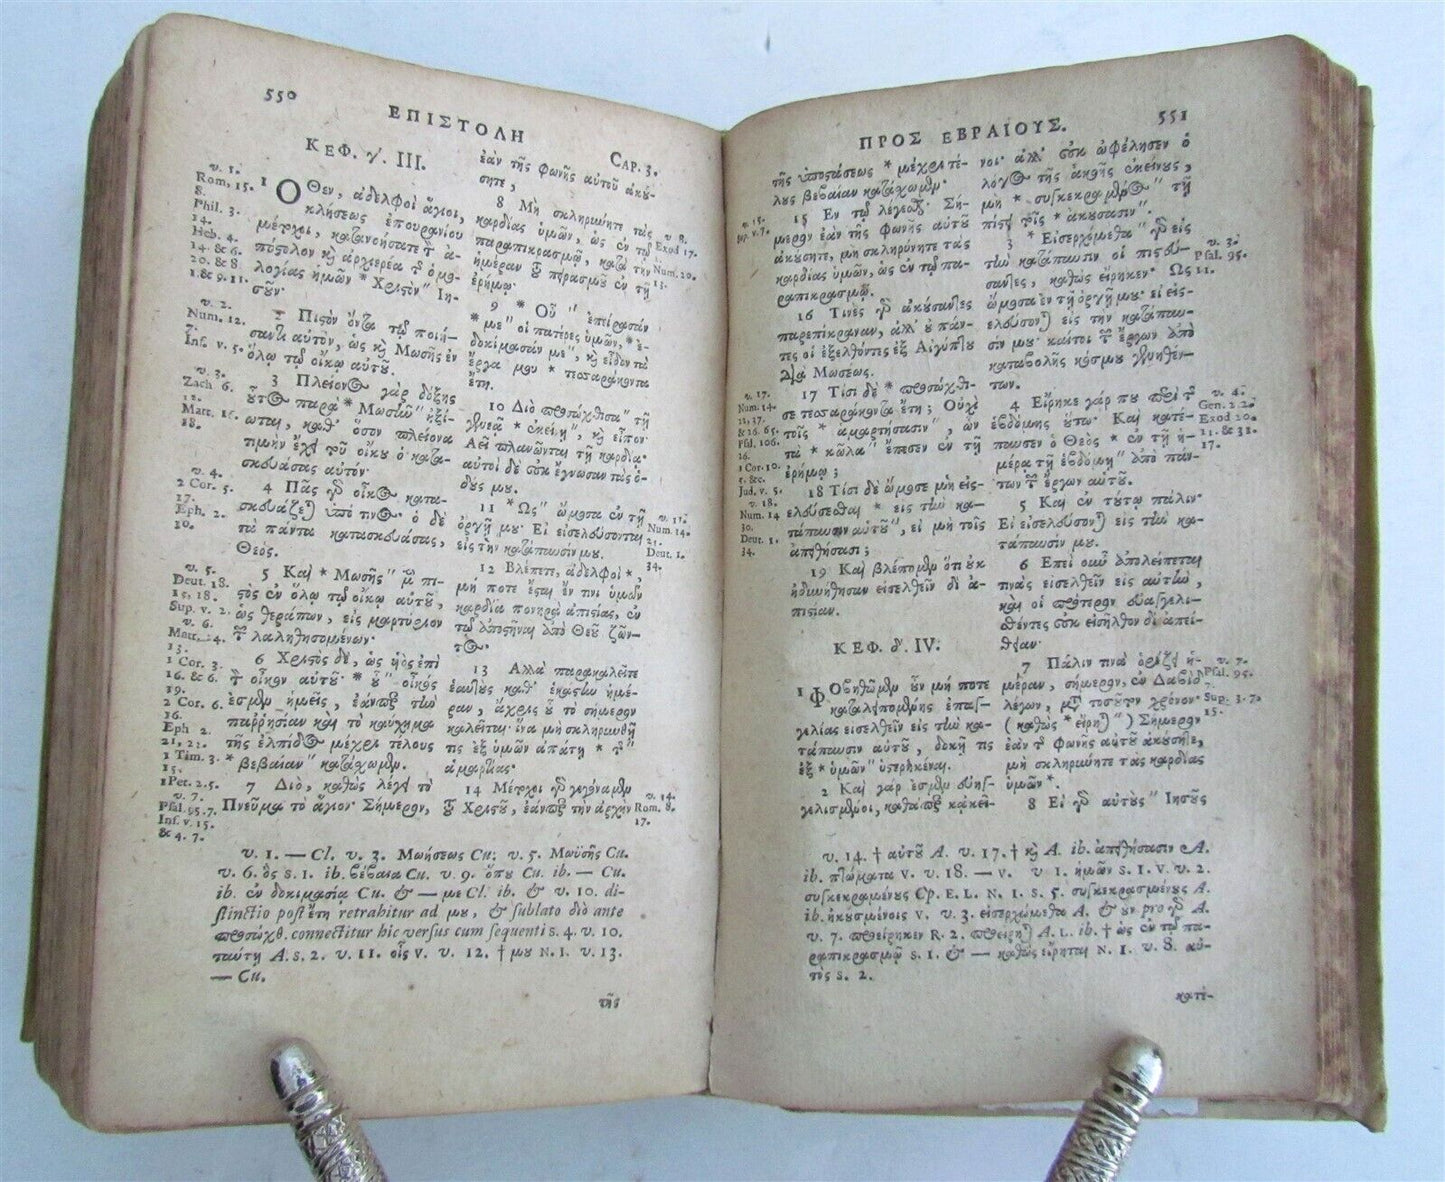 550
ΕΠΙΣΤΟΛΗ
CAP. 3.
ΚΕΦ. γ. III.
1 ΟΘεν, ἀδελφοὶ ἅγιοι,
κλήσεως ἐπουρανίου
μέτοχοι, κατανοήσατε τ̀ ἀ-
πόστολον κ̀ ἀρχιερέα τ̀ ὁμο-
λογίας ἡμῶν * Χριστὸν" Ἰη-
σοῦν·
2 Πιστὸν ὄντα τῷ ποιή-
σαντι αὐτὸν, ὡς κ̀ Μωσῆς ἐν
ὅλῳ τῷ οἴκῳ αὐτοῦ.
3 Πλείονος γὰρ δόξης
οὗτος παρὰ * Μωσῆν" ἠξί-
ωται, καθ' ὅσον πλείονα
τιμὴν ἔχει τοῦ οἴκου ὁ κατα-
σκευάσας αὐτόν·
4 Πᾶς γὰρ οἶκος κατα-
σκευάζεται ὑπό τινος· ὁ δὲ
τὰ πάντα κατασκευάσας,
Θεός.
5 Καὶ * Μωσῆς" μὲν πι-
στὸς ἐν ὅλῳ τῷ οἴκῳ αὐτοῦ,
ὡς θεράπων, εἰς μαρτύριον
τ̀ λαληθησομένων·
6 Χριστὸς δὲ, ὡς υἱὸς ἐπὶ
τ̀ οἶκον αὐτοῦ· * οὗ" οἶκός
ἐσμεν ἡμεῖς, ἐάνπερ τὴν
παῤῥησίαν καὶ τὸ καύχημα
τῆς ἐλπίδος μέχρι τέλους
* βεβαίαν" κατάσχωμεν.
7 Διὸ, καθὼς λέγει τὸ
Πνεῦμα τὸ ἅγιον· Σήμερον,
v. 1.
Rom, 15.
8.
Phil. 3.
14.
Heb. 4.
14. & 6.
20. & 8.
1. & 9. 11.
v. 2.
Num. 12.
7.
Inf. v. 5.
v. 3.
Zach 6.
12.
Matt. 16.
18.
v. 4.
2 Cor. 5.
17.
Eph. 2.
10.
v. 5.
Deut. 18.
15, 18.
Sup. v. 2.
v. 6.
Matt. 24.
13.
1 Cor. 3.
16. & 6.
19.
2 Cor. 6.
16.
Eph 2.
21, 22.
1 Tim. 3.
15.
1 Pet. 2. 5.
v. 7.
Psal. 95. 7.
Inf. v. 15.
& 4. 7.
ἐὰν τῆς φωνῆς αὐτοῦ ἀκού-
σητε,
8 Μὴ σκληρύνητε τὰς
καρδίας ὑμῶν, ὡς ἐν τῷ
παραπικρασμῷ, κατὰ τὴν
ἡμέραν τοῦ πειρασμοῦ ἐν τῇ
ἐρήμῳ·
9 * Οὗ" ἐπείρασάν
* με" οἱ πατέρες ὑμῶν, * ἐ-
δοκίμασάν με", κ̀ εἶδον τὰ
ἔργα μου * τεσσαράκοντα
ἔτη.
10 Διὸ προσώχθισα" τῇ
γενεᾷ * ἐκείνῃ", κ̀ εἶπον·
Ἀεὶ πλανῶνται τῇ καρδίᾳ·
αὐτοὶ δὲ οὐκ ἔγνωσαν τὰς ὁ-
δούς μου.
11 * Ὡς" ὤμοσα ἐν τῇ
ὀργῇ μου· Εἰ εἰσελεύσονται
εἰς τὴν κατάπαυσίν μου.
12 Βλέπετε, ἀδελφοὶ *,
μή ποτε ἔσται ἔν τινι ὑμῶν
καρδία πονηρὰ ἀπιστίας, ἐν
τῷ ἀποστῆναι ἀπὸ Θεοῦ ζῶν-
τος·
13 Ἀλλὰ παρακαλεῖτε
ἑαυτοὺς καθ' ἑκάστην ἡμέ-
ραν, ἄχρις οὗ τὸ σήμερον
καλεῖται· ἵνα μὴ σκληρυνθῇ
τὶς ἐξ ὑμῶν ἀπάτῃ * τ̀"
ἁμαρτίας·
14 Μέτοχοι γὰρ γεγόναμεν
τοῦ Χριστοῦ, ἐάνπερ τὴν ἀρχὴν
v. 8.
Exod 17.
Num. 20.
13.
v. 11.
Num. 14.
21.
Deut. 1.
34.
v. 14.
Rom. 8.
17.
v. 1. — Cl. v. 3. Μωήσεως Cu. v. 5. Μωϋσῆς Cu.
v. 6. ὃς S. 1. ib. βέβαια Cu. v. 9. ὅπου Cu. ib. — Cu.
ib. ἐν δοκιμασίᾳ Cu. & — με Cl. ib. & v. 10. di-
stinctio post ἔτη retrahitur ad μου, & sublato διὸ ante
προσώχθ. connectitur hic versus cum sequenti S. 4. v. 10.
ταύτῃ A. S. 2. v. 11. οἷς V. v. 12. † μου N. 1. v. 13.
— Cu.
τῆς
ΠΡΟΣ ΕΒΡΑΙΟΥΣ.
551
τῆς ὑποστάσεως * μέχρι τέ-
λους βεβαίαν κατάσχωμεν.
15 Ἐν τῷ λέγεσθαι· Σή-
μερον ἐὰν τῆς φωνῆς αὐτοῦ
ἀκούσητε, μὴ σκληρύνητε τὰς
καρδίας ὑμῶν, ὡς ἐν τῷ πα-
ραπικρασμῷ.
16 Τινὲς γὰρ ἀκούσαντες
παρεπίκραναν, ἀλλ' οὐ πάν-
τες οἱ ἐξελθόντες ἐξ Αἰγύπτου
διὰ Μωσέως.
17 Τίσι δὲ * προσώχθι-
σε τεσσαράκοντα ἔτη; Οὐχὶ
τοῖς * ἁμαρτήσασιν", ὧν
τὰ * κῶλα" ἔπεσεν ἐν τῇ
ἐρήμῳ;
18 Τίσι δὲ ὤμοσε μὴ εἰσ-
ελεύσεσθαι * εἰς τὴν κα-
τάπαυσιν αὐτοῦ", εἰ μὴ τοῖς
ἀπειθήσασι;
19 Καὶ βλέπομεν ὅτι οὐκ
ἠδυνήθησαν εἰσελθεῖν δι' ἀ-
πιστίαν.
ΚΕΦ. δ. IV.
1 ΦΟβηθῶμεν οὖν μή ποτε
καταλειπομένης ἐπαγ-
γελίας εἰσελθεῖν εἰς τὴν κα-
τάπαυσιν αὐτοῦ, δοκῇ τὶς
ἐξ * ὑμῶν" ὑστερηκέναι.
2 Καὶ γάρ ἐσμεν εὐηγ-
γελισμένοι, καθάπερ κἀκεῖ-
v. 15.
Sup. v. 7.
v. 17.
Num. 14.
22, 37.
& 26. 65.
Psal. 106.
26.
1 Cor. 10.
5. &c.
Jud. v. 5.
v. 18.
Num. 14
30.
Deut. 1.
34.
νοι· ἀλλ' οὐκ ὠφέλησεν ὁ
λόγος τῆς ἀκοῆς ἐκείνους,
μὴ * συγκεκραμένος" τῇ
πίστει τοῖς * ἀκούσασιν".
3 * Εἰσερχόμεθα" γὰρ εἰς
τὴν κατάπαυσιν οἱ πιστεύ-
σαντες, καθὼς εἴρηκεν· Ὡς
ὤμοσα ἐν τῇ ὀργῇ μου· εἰ εἰσ-
ελεύσονται εἰς τὴν κατάπαυ-
σίν μου· καίτοι τ̀ ἔργων ἀπὸ
καταβολῆς κόσμου γενηθέν-
των.
4 Εἴρηκε γάρ που περὶ τ̀
ἑβδόμης οὕτω· Καὶ κατέ-
παυσεν ὁ Θεὸς * ἐν τῇ ἡ-
μέρᾳ τῇ ἑβδόμῃ" ἀπὸ πάν-
των τ̀ ἔργων αὐτοῦ.
5 Καὶ ἐν τούτῳ πάλιν·
Εἰ εἰσελεύσονται εἰς τὴν κα-
τάπαυσίν μου.
6 Ἐπεὶ οὖν ἀπολείπεται
τινὰς εἰσελθεῖν εἰς αὐτὴν,
καὶ οἱ πρότερον εὐαγγελι-
σθέντες οὐκ εἰσῆλθον δι' ἀπεί-
θειαν·
7 Πάλιν τινὰ ὁρίζει ἡ-
μέραν, σήμερον, ἐν Δαβὶδ
λέγων, μετὰ τοσοῦτον χρόνον·
( καθὼς * εἴρηται" ) Σήμερον
ἐὰν τ̀ φωνῆς αὐτοῦ ἀκούσητε,
μὴ σκληρύνητε τὰς καρδίας
ὑμῶν *.
8 Εἰ γὰρ αὐτοὺς" Ἰησοῦς
v. 3.
Psal. 95.
11.
v. 4.
Gen. 2. 2.
Exod 20.
11. & 31.
17.
v. 7.
Psal. 95.
7.
Sup. 3. 7.
15.
v. 14. † αὐτοῦ A. v. 17. † κ̀ A. ib. ἀπειθήσασιν A.
ib. πτώματα V. v. 18. — V. v 1. ἡμῶν S. 1. V. v. 2.
συγκεκραμένους Cp. E. L. N. 1. S. 5. συγκεκρασμένους A.
ib. ἠκουσμένοις V. v. 3. εἰσερχώμεθα A. & οὖν pro γὰρ A.
v. 7. προείρηκεν R. 2. προείρηται A. L. ib. † ὡς ἐν τῷ πα-
ραπικρασμῷ S. 1. & — καθὼς εἴρηται N. 1. v. 8. αὐ-
τὸς S. 2.
κατέ-